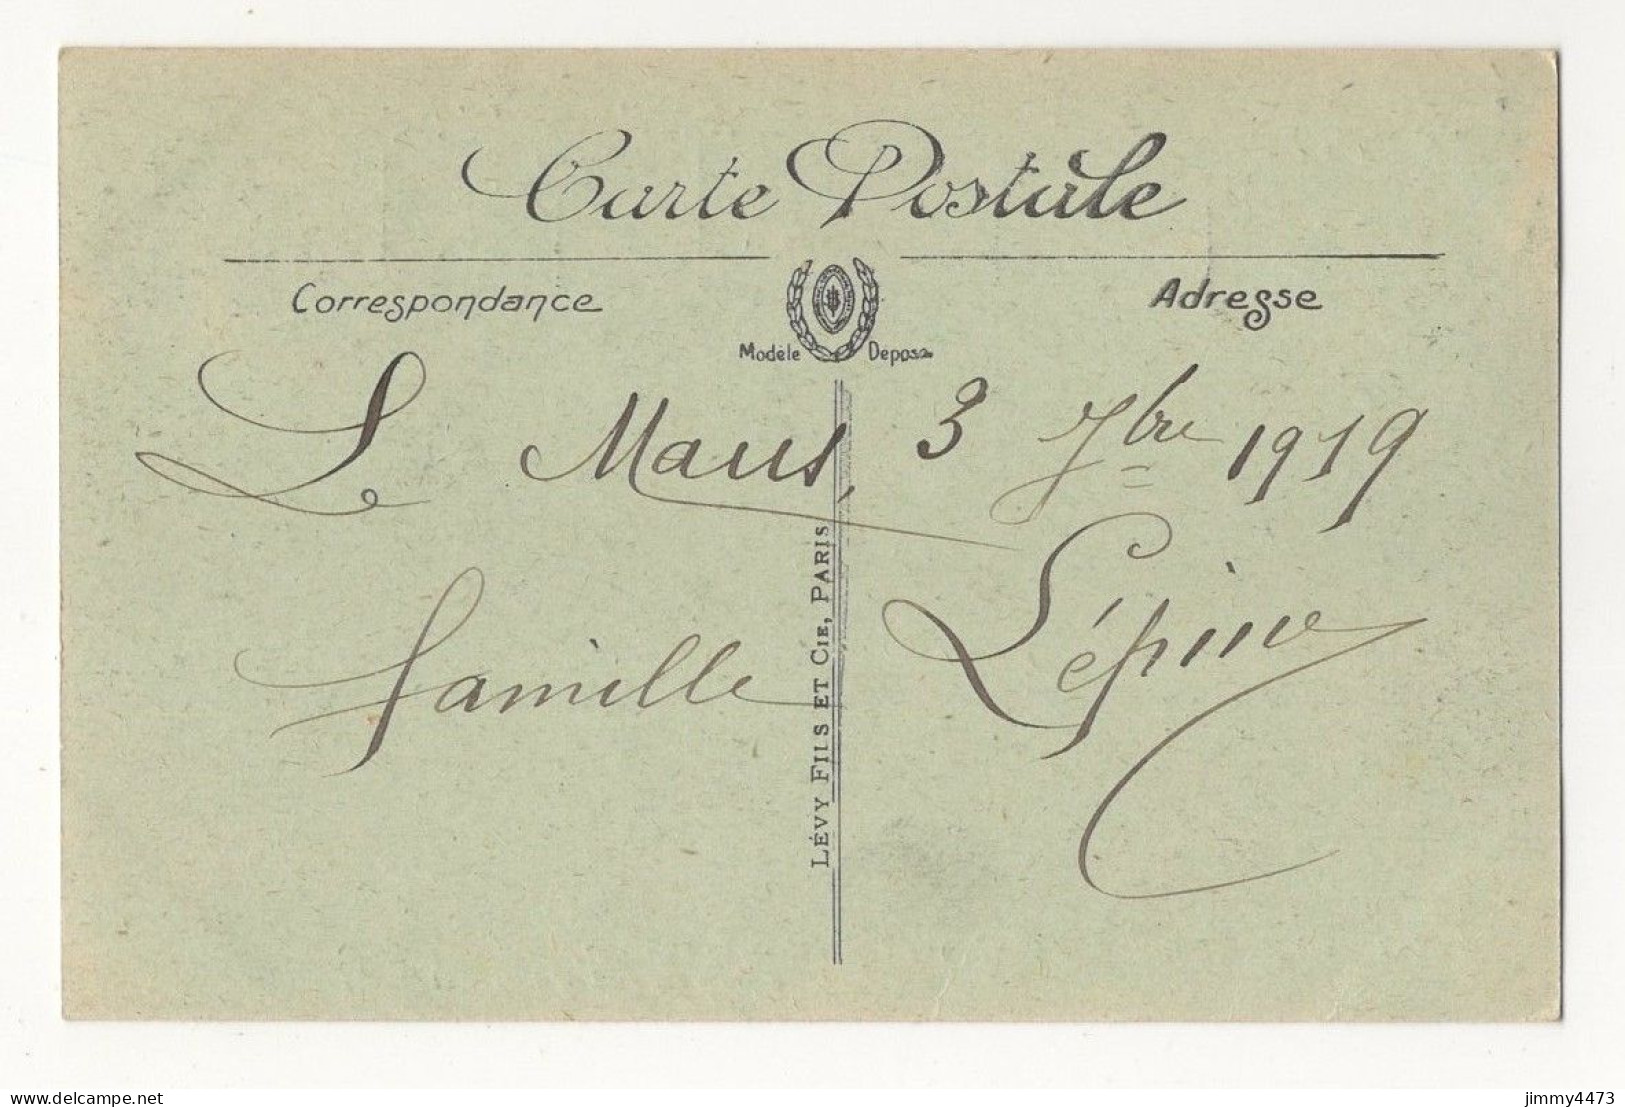 Carte Postale
Correspondance
Adresse
Modèle Déposé
Le Mans, 3 7bre 1919
famille Lépine
LÉVY FILS ET CIE, PARIS
www.delcampe.net
jimmy4473